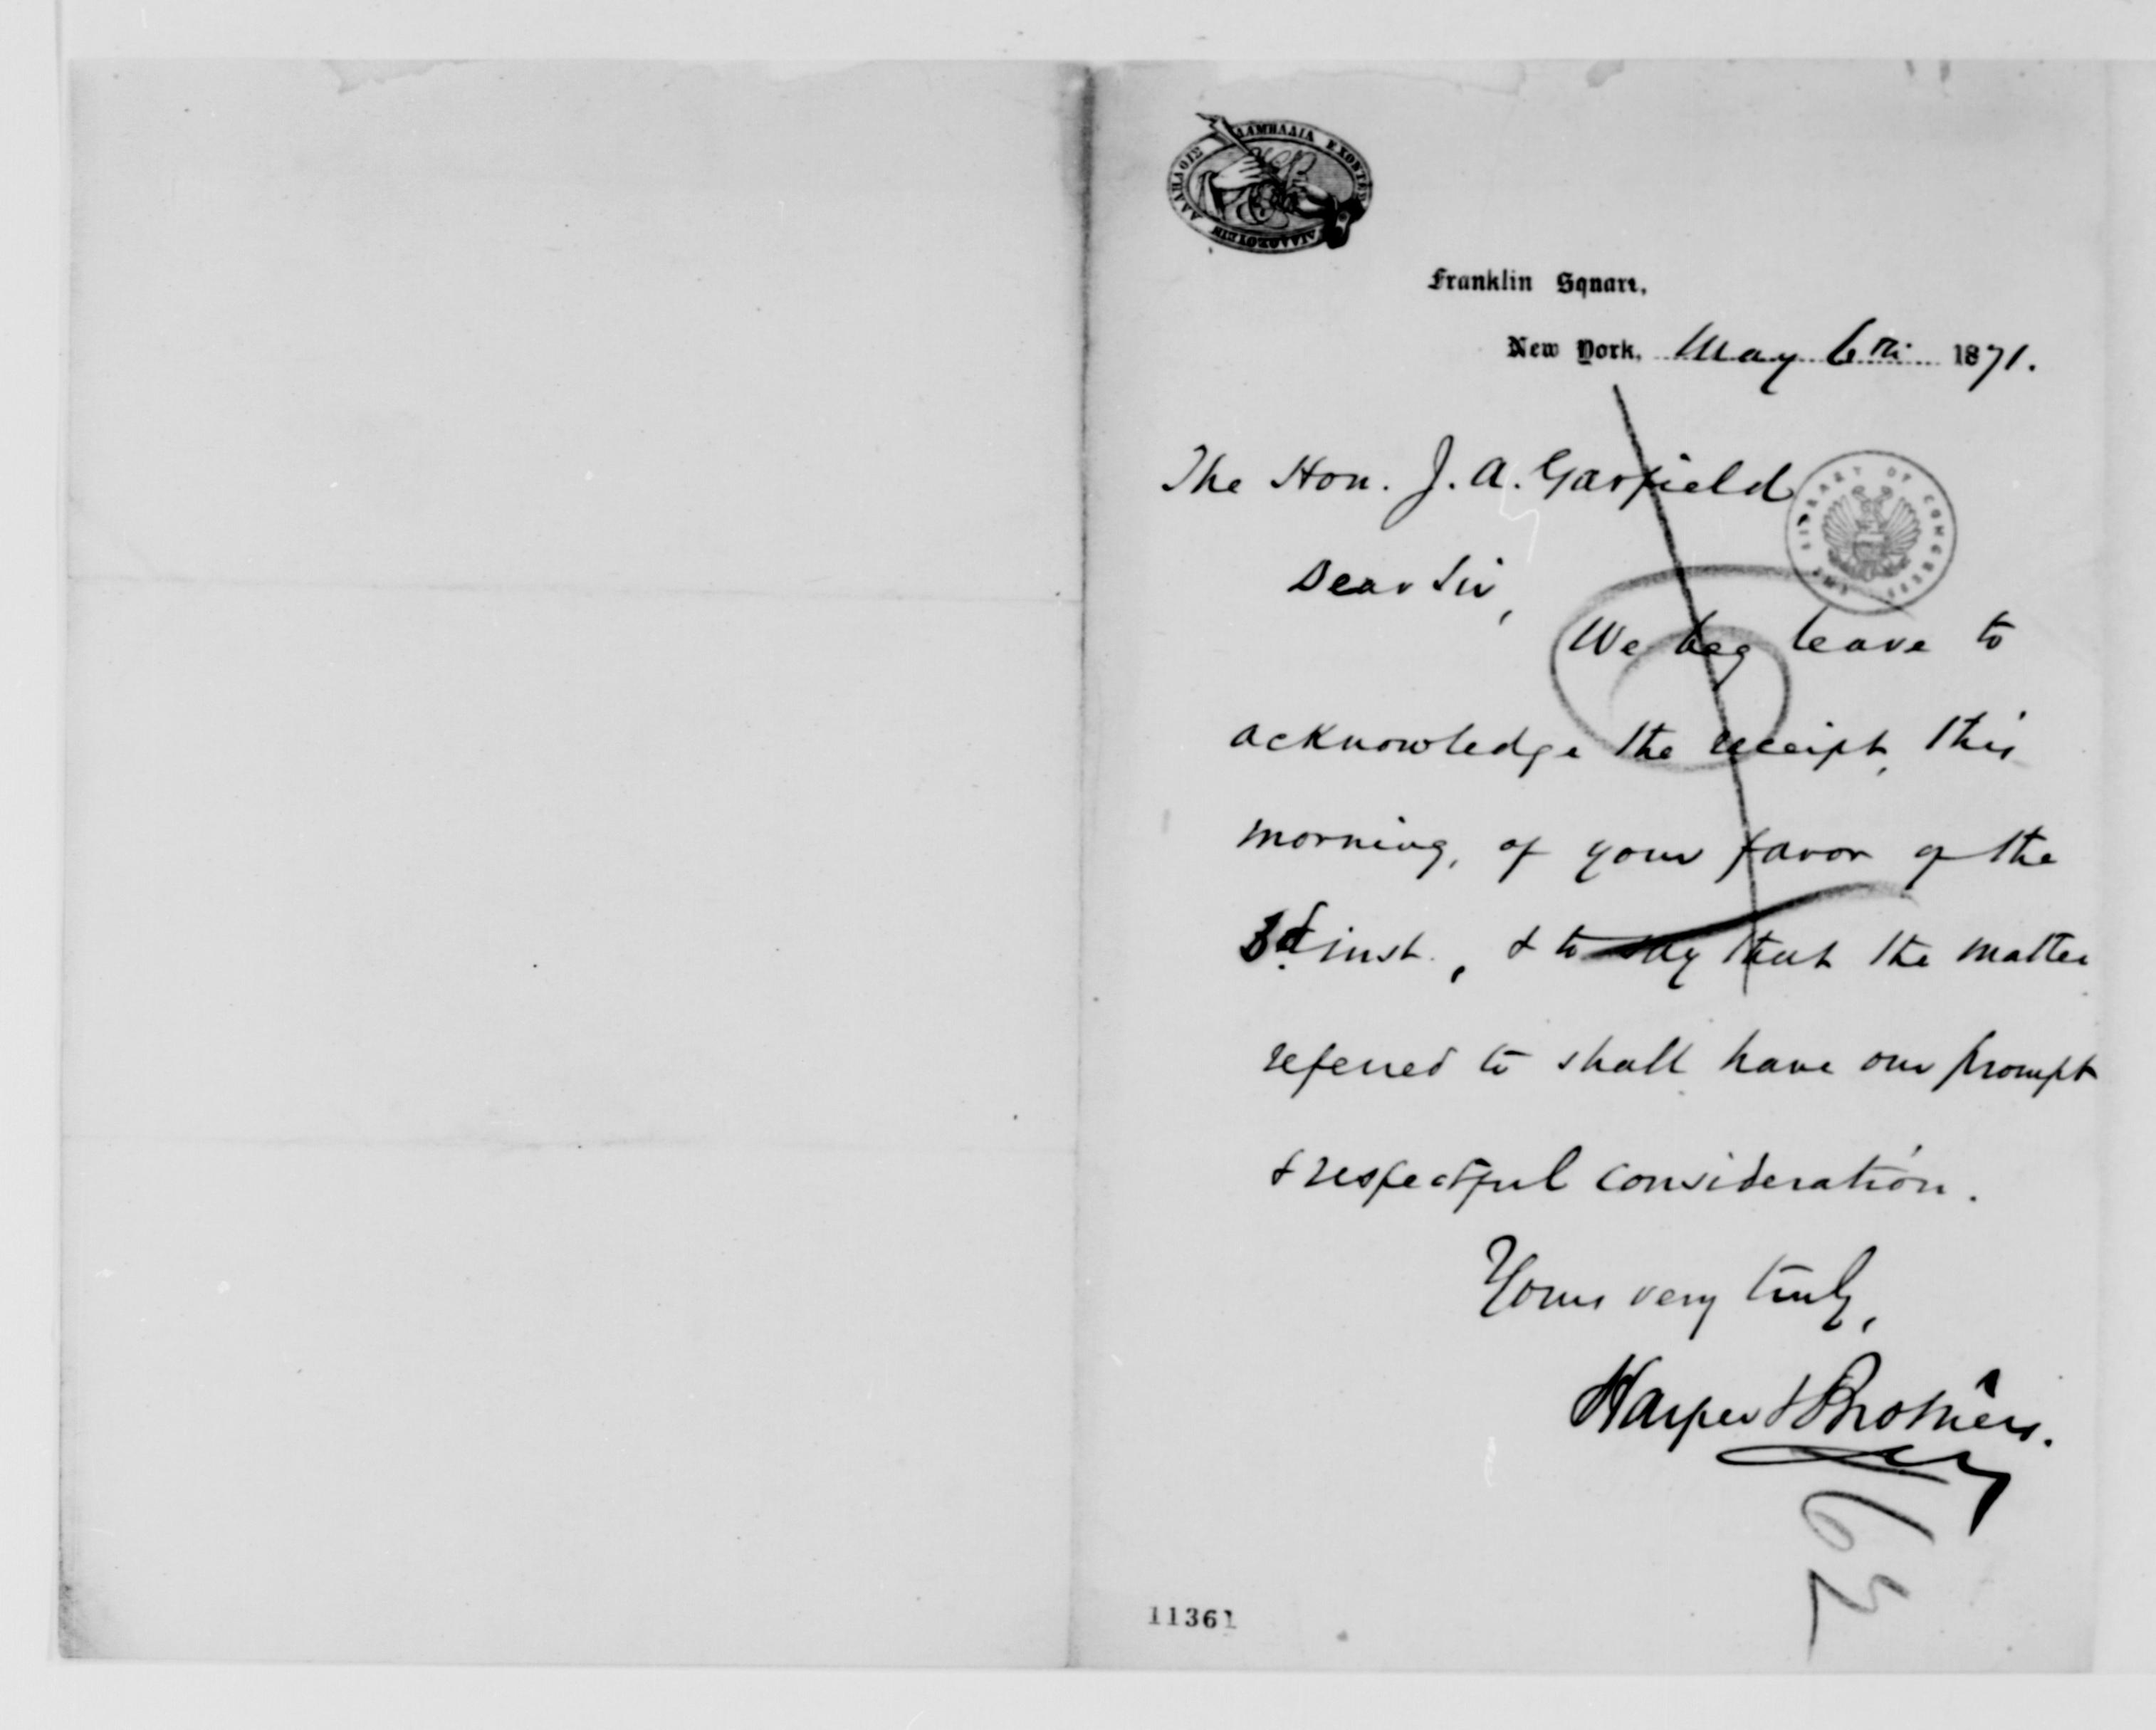 ΛΑΜΠΑΔΙΑ ΕΧΟΝΤΕΣ ΔΙΑΔΩΣΟΥΣΙΝ ΑΛΛΗΛΟΙΣ
Franklin Square,
New York, May 6th 1871.
The Hon. J. A. Garfield
THE LIBRARY OF CONGRESS
Dear Sir,
We beg leave to
acknowledge the receipt, this
morning, of your favor of the
3d inst., & to say that the matter
referred to shall have our prompt
& respectful consideration.
Yours very truly,
Harper & Brothers.
11361